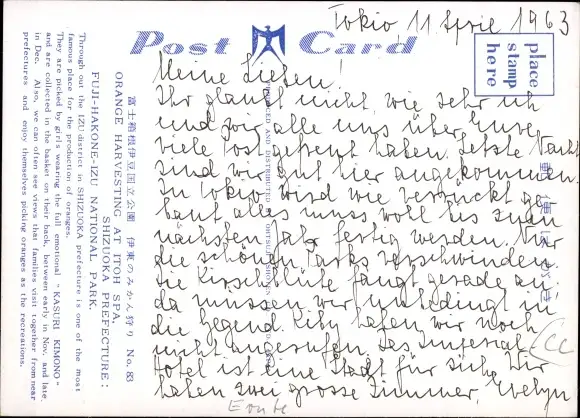 Tokio, 11 April, 1963
Post Card
place
stamp
here
Meine Lieben!
Ihr glaubt nicht wie sehr ich
und wir alle uns über Eure
viele Post gefreut haben. Letzte Nacht
sind wir gut hier angekommen.
In Tokio wird wie verrückt ge-
baut alles muss wohl bis zum
nächsten Jahr fertig werden. Nur
die schönen Parks verschwinden
die Kirschblüte fängt gerade an
da müssen wir unbedingt in
die Gegend. Kity haben wir noch
nicht angerufen. Das Imperial
Hotel ist eine Stadt für sich. Wir
haben zwei grosse Zimmer, Evelyn
富士箱根伊豆国立公園 伊東のみかん狩り No. 83
ORANGE HARVESTING AT ITOH SPA.
SHIZUOKA PREFECTURE:
FUJI-HAKONE-IZU NATIONAL PARK.
Through out the IZU district in SHIZUOKA prefecture is one of the most
famous place for the production of oranges.
They are picked by girls wearing the full emotional "KASURI KIMONO"
and are collected in the basket on their back, between early in Nov. and late
in Dec. Also, we can often see views that families visit together from near
prefectures and enjoy themselves picking oranges as the recreations.
郵便はがき